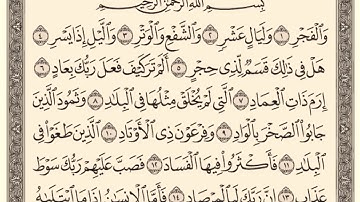 بِسْمِ ٱللَّهِ ٱلرَّحْمَٰنِ ٱلرَّحِيمِ
وَٱلْفَجْرِ ١ وَلَيَالٍ عَشْرٍ ٢ وَٱلشَّفْعِ وَٱلْوَتْرِ ٣ وَٱلَّيْلِ إِذَا يَسْرِ ٤
هَلْ فِى ذَٰلِكَ قَسَمٌ لِّذِى حِجْرٍ ٥ أَلَمْ تَرَ كَيْفَ فَعَلَ رَبُّكَ بِعَادٍ ٦
إِرَمَ ذَاتِ ٱلْعِمَادِ ٧ ٱلَّتِى لَمْ يُخْلَقْ مِثْلُهَا فِى ٱلْبِلَٰدِ ٨ وَثَمُودَ ٱلَّذِينَ
جَابُوا۟ ٱلصَّخْرَ بِٱلْوَادِ ٩ وَفِرْعَوْنَ ذِى ٱلْأَوْتَادِ ١٠ ٱلَّذِينَ طَغَوْا۟ فِى
ٱلْبِلَٰدِ ١١ فَأَكْثَرُوا۟ فِيهَا ٱلْفَسَادَ ١٢ فَصَبَّ عَلَيْهِمْ رَبُّكَ سَوْطَ
عَذَابٍ ١٣ إِنَّ رَبَّكَ لَبِٱلْمِرْصَادِ ١٤ فَأَمَّا ٱلْإِنسَٰنُ إِذَا مَا ٱبْتَلَىٰهُ